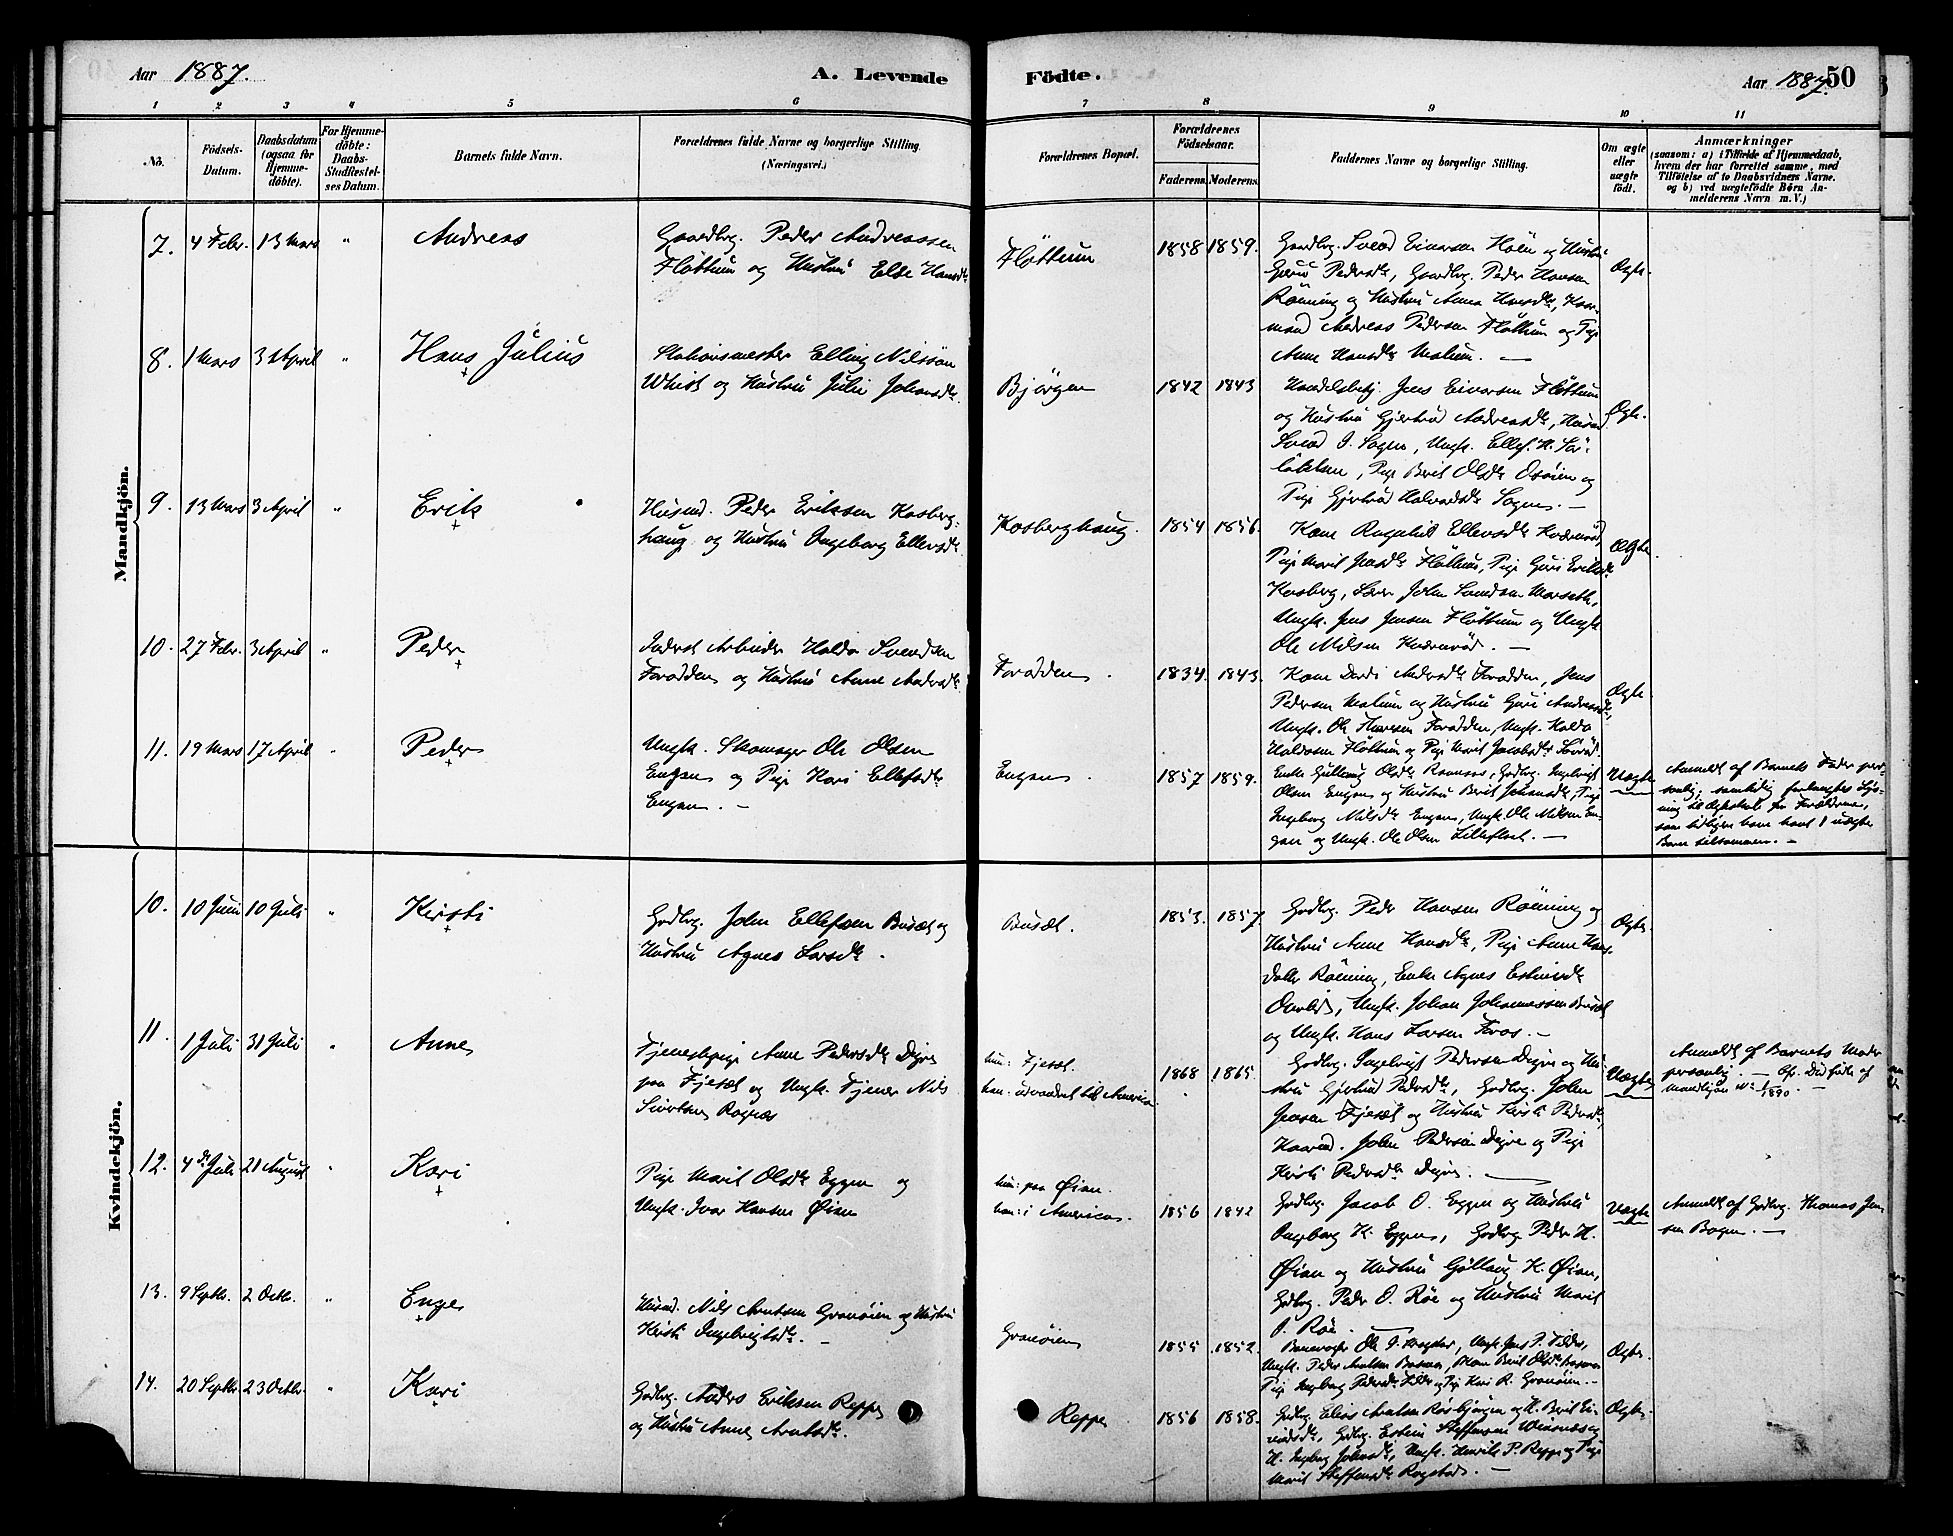 Aar 1887.
A. Levende
Födte.
Aar 1887. 50
1 2 3 4 5 6 7 8 9 10 11
No.
Födsels-
Datum.
Daabsdatum
(ogsaa for
Hjemme-
döbte).
For Hjemme-
döbte:
Daabs-
Stadfæstel-
ses Datum.
Barnets fulde Navn.
Forældrenes fulde Navne og borgerlige Stilling.
(Næringsvei.)
Forældrenes Bopæl.
Forældrenes
Födselsaar.
Faderens.
Moderens.
Faddernes Navne og borgerlige Stilling.
Om ægte
eller
uægte
födt.
Anmærkninger
(saasom: a) i Tilfælde af Hjemmedaab,
hvem der har forrettet samme, med
Tilföielse af to Daabsvidners Navne.
og b) ved uægtefödte Börn An-
melderens Navn m. V.)
Mandkjön.
7. 4 Febr. 13 Mars " Andreas
Gaardbrg. Peder Andreassen
Fløttum og Hustru Else Hansdtr
Fløttum
1858 1859.
Gaardbrg. Svend Einarsen Hølen og Hustru
Pedersdtr, Gaardbrg. Peder Hansen
Rönning og Hustru Anne Hansdtr, Kaar-
mand Andreas Pedersen Fløttum og Pige
Anne Hansdtr Malum. —
Ægte.
8. 1 Mars 3 April " Hans Julius
Stationsmester Elling Nilssön
Whist og Hustru Julie Johansdtr.
Bjørgen
1842 1843
Handelsbetj. Jens Einarsen Fløttum
og Hustru Gjertrud Andreasdtr, Husmd
Svend O. Sogn, Ungk. Ellef. H. Sör-
løkken, Pige Berit Olsdtr Osøien og
Pige Gjertrud Halvorsdtr Sogn. —
Ægte.
9. 13 Mars 3 April " Erik
Husmd. Peder Eriksen Kosberg-
haug og Hustru Ingeborg Ellevsdtr
Kosberghaug.
1854 1856.
Kone Ragnhild Ellevsdtr Kværnrød,
Pige Marit Jensdtr Fløttum, Pige Guri Eriksdtr
Kosberg, Lærer John Morseth,
Ungk. Jens Jensen Fløttum og Ungk
Ole Nilsen Kværnrød. —
Ægte.
10. 27 Febr. 3 April " Peder
Inderst Arbeider Haldo Svendsen
Foradden og Hustru Anne Andersdtr.
Foradden.
1834. 1843.
Kone Dordi Andersdtr Foradden, Jens
Pedersen Malum og Hustru Guri Andreasdtr,
Ungk. Ole Foradden, Ungk. Haldo
Haldosen Fløttum og Pige Marit Jacobsdtr
Ægte
11. 19 Mars 17 April " Peder
Ungk. Skomager Ole Olsen
Engen og Pige Kari Ellefsdtr
Engen. —
Engen.
1857 1859.
Enke Gullaug Olsdtr Ramnes, Grdbrg. Ingebrigt
Olsen Engen og Hustru Berit Johansdtr, Pige
Ingeborg Nilsdtr Engen, Ungk. Ole Nilsen En-
gen og Ungk. Ole Olsen Lillefloet. —
Uægte
Anmeldt af Barnets Fader per-
sonlig; samtidig forlangtes Lys-
ning til Ægteskab for Forældrene,
som tidligere have havt 1 uægte
Barn tilsammen. —
Kvindekjön.
10. 10 Juni 10 Juli " Kirsti
Grdbrg. John Ellefsen Busæt og
Hustru Agnes Larsdtr.
Busæt.
1853. 1857.
Grdbrg. Peder Hansen Rönning og
Hustru Anne Hansdtr, Pige Anne Hans-
datter Rönning, Enke Agnes Estensdtr
Ungk. Johan Johannessen Busæt
og Ungk. Hans Larsen Foros. —
Ægte.
11. 1 Juli 31 Juli " Anne
Tjenestepige Anne Pedersdtr Digre
paa Fjeset og Ungk. Tjener Nils
Sivertsen Rognes
hun: Fjeset.
han: udvandret til America.
1868 1865.
Grdbrg. Ingebrigt Pedersen Digre og Hu-
stru Gjertrud Pedersdtr, Grdbrg. John
Jensen Fjeset og Hustru Kirsti Pedersdtr,
Kaarmd. John Pedersen Digre og Pige
Kirsti Pedersdtr Digre. —
Uægte
Anmeldt af Barnets Moder
personlig. — Cfr. Dödfödte af
Mandkjøn No. 1/1890.
12. 4de Juli 21 August " Kari
Pige Marit Olsdtr Eggen og
Ungk. Ivar Hansen Øien
hun: paa Øien.
han: i America.
1856 1842
Grdbrg. Jacob O. Eggen og Hustru
Ingeborg K. Eggen, Grdbrg. Peder H.
Øien og Hustru Gullaug K. Øien,
Grdbrg. Peder O. Røe og Hustru Marit
O. Røe. —
Uægte
Anmeldt af Grdbrg. Thomas Jen-
sen Bogen. —
13. 9 Septbr. 2 Octbr. " Enger
Husmd. Nils Arntsen Granøien og Hustru
Kirsti Ingebrigtsdtr. —
Granøien
1855 1852.
Banevogter Ole J. Ungk. Jens P.
Ungk. Peder Arntsen Kone Berit Olsdtr
Pige Ingeborg Pedersdtr og Pige Kari R. Granøien. —
Ægte.
14. 20 Septbr. 23 Octbr. " Kari
Grdbrg. Anders Eriksen Reppe
og Hustru Anne Arntsdtr.
Reppe
1856 1858.
Grdbrg. Elias Arntsen Rosbjørgen og H. Berit Ei-
vindsdtr, Grdbrg. Esten Steffensen Winsnes og
H. Ingeborg Johnsdtr, Ungk. Henrik P. Reppe og Pige
Marit Steffensdtr Rogstad. —
Ægte.